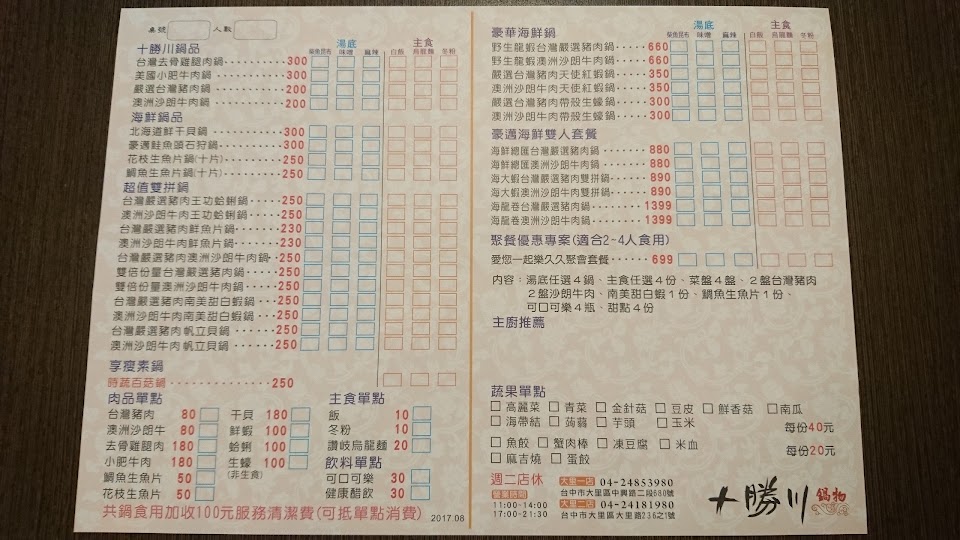 桌號 人數
湯底 主食
十勝川鍋品 柴魚昆布 味噌 麻辣 白飯 烏龍麵 冬粉
台灣去骨雞腿肉鍋 300
美國小肥牛肉鍋 300
嚴選台灣豬肉鍋 200
澳洲沙朗牛肉鍋 200
海鮮鍋品
北海道鮮干貝鍋 300
豪邁鮭魚頭石狩鍋 300
花枝生魚片鍋(十片) 250
鯛魚生魚片鍋(十片) 250
超值雙拼鍋
台灣嚴選豬肉王功蛤蜊鍋 250
澳洲沙朗牛肉王功蛤蜊鍋 250
台灣嚴選豬肉鮮魚片鍋 230
澳洲沙朗牛肉鮮魚片鍋 230
台灣嚴選豬肉澳洲沙朗牛肉鍋 250
雙倍份量台灣嚴選豬肉鍋 250
雙倍份量澳洲沙朗牛肉鍋 250
台灣嚴選豬肉南美甜白蝦鍋 250
澳洲沙朗牛肉南美甜白蝦鍋 250
台灣嚴選豬肉帆立貝鍋 250
澳洲沙朗牛肉帆立貝鍋 250
享瘦素鍋
時蔬百菇鍋 250
肉品單點
台灣豬肉 80
澳洲沙朗牛 80
去骨雞腿肉 180
小肥牛肉 180
鯛魚生魚片 50
花枝生魚片 50
干貝 180
鮮蝦 100
蛤蜊 100
生蠔 100
(非生食)
主食單點
飯 10
冬粉 10
讚岐烏龍麵 20
飲料單點
可口可樂 30
健康醋飲 30
共鍋食用加收100元服務清潔費(可抵單點消費) 2017.08
湯底 主食
豪華海鮮鍋 柴魚昆布 味噌 麻辣 白飯 烏龍麵 冬粉
野生龍蝦台灣嚴選豬肉鍋 660
野生龍蝦澳洲沙朗牛肉鍋 660
嚴選台灣豬肉天使紅蝦鍋 350
澳洲沙朗牛肉天使紅蝦鍋 350
嚴選台灣豬肉帶殼生蠔鍋 300
澳洲沙朗牛肉帶殼生蠔鍋 300
豪邁海鮮雙人套餐
海鮮總匯台灣嚴選豬肉鍋 880
海鮮總匯澳洲沙朗牛肉鍋 880
海大蝦台灣嚴選豬肉雙拼鍋 890
海大蝦澳洲沙朗牛肉雙拼鍋 890
海龍卷台灣嚴選豬肉鍋 1399
海龍卷澳洲沙朗牛肉鍋 1399
聚餐優惠專案(適合2~4人食用)
愛您一起樂久久聚會套餐 699
內容：湯底任選4鍋、主食任選4份、菜盤4盤、2盤台灣豬肉
2盤沙朗牛肉、南美甜白蝦1份、鯛魚生魚片1份、
可口可樂4瓶、甜點4份
主廚推薦
蔬果單點
高麗菜 青菜 金針菇 豆皮 鮮香菇 南瓜
海帶結 蒟蒻 芋頭 玉米 每份40元
魚餃 蟹肉棒 凍豆腐 米血 每份20元
麻吉燒 蛋餃
週二店休
營業時間
11:00-14:00
17:00-21:30
大里一店 04-24853980
台中市大里區中興路二段680號
大里二店 04-24181980
台中市大里區大里路236之1號
十勝川 鍋物